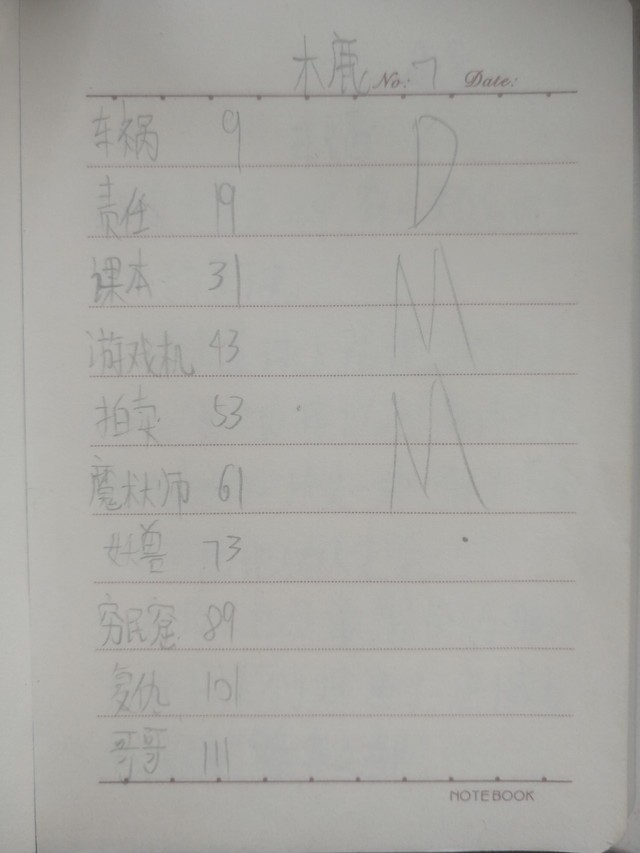 木鹿 No: 7 Date:
车祸 9
责任 19
课本 31
游戏机 43
拍卖 53
魔术师 61
妖兽 73
穷民窟 89
复仇 101
哥哥 111
D
M
M
NOTEBOOK